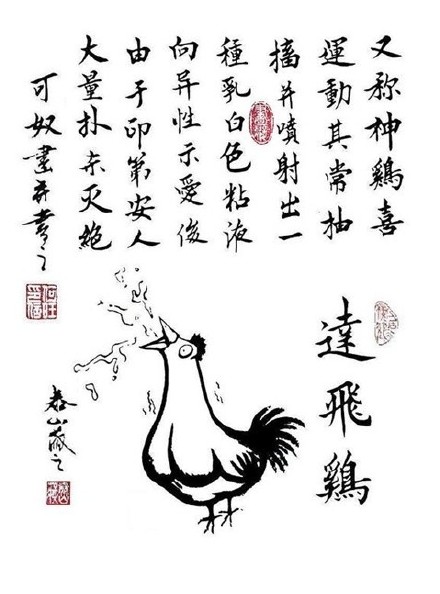 又称神鷄喜
運動其常抽
搐并噴射出一
種乳白色粘液
向异性示愛後
由于印第安人
大量扑杀灭絶
可奴畫并書之
達飛鷄
泰山藏之